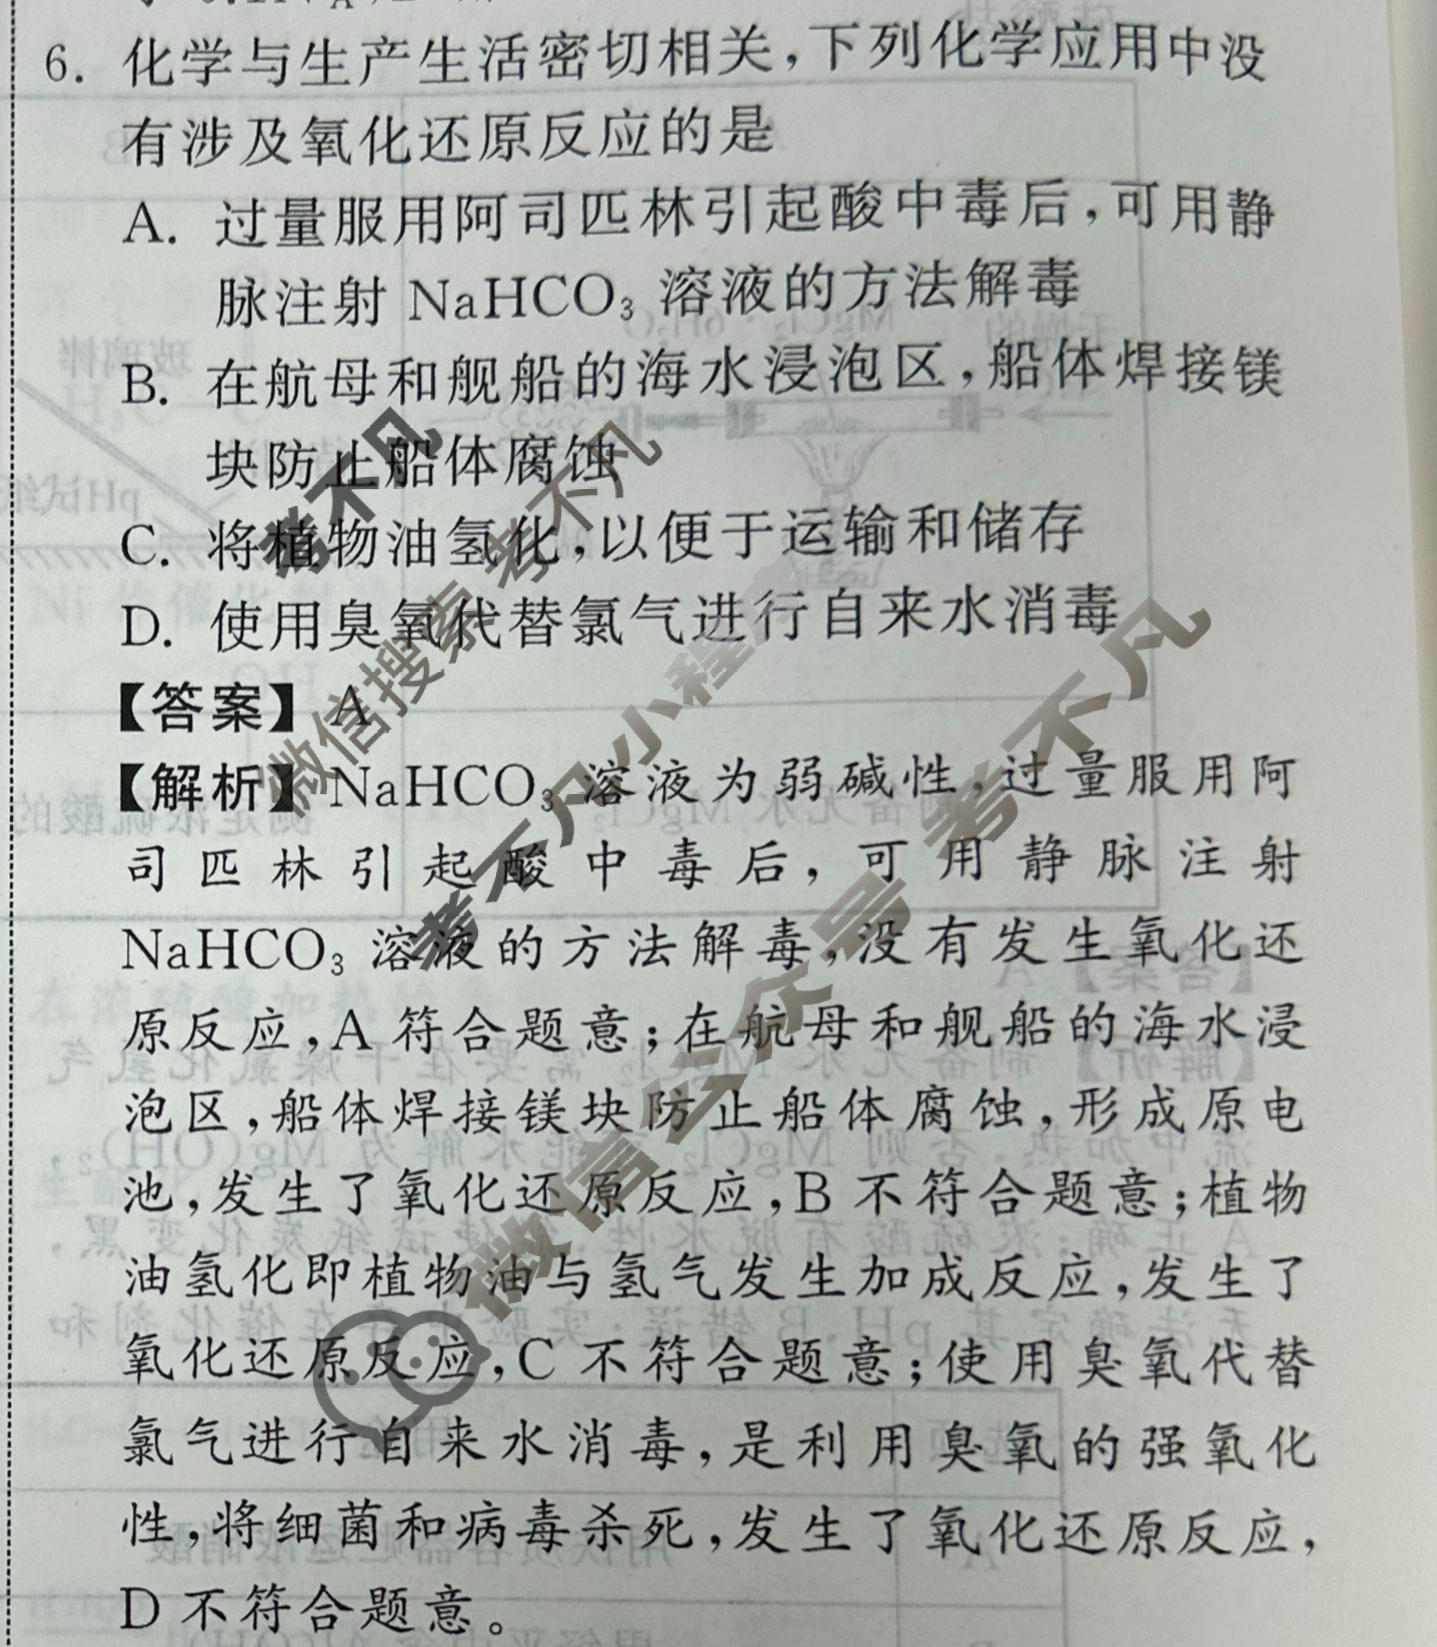 6. 化学与生产生活密切相关,下列化学应用中没
有涉及氧化还原反应的是
A. 过量服用阿司匹林引起酸中毒后,可用静
脉注射 NaHCO₃ 溶液的方法解毒
B. 在航母和舰船的海水浸泡区,船体焊接镁
块防止船体腐蚀
C. 将植物油氢化,以便于运输和储存
D. 使用臭氧代替氯气进行自来水消毒
【答案】 A
【解析】NaHCO₃ 溶液为弱碱性,过量服用阿
司匹林引起酸中毒后,可用静脉注射
NaHCO₃ 溶液的方法解毒,没有发生氧化还
原反应,A 符合题意;在航母和舰船的海水浸
泡区,船体焊接镁块防止船体腐蚀,形成原电
池,发生了氧化还原反应,B 不符合题意;植物
油氢化即植物油与氢气发生加成反应,发生了
氧化还原反应,C 不符合题意;使用臭氧代替
氯气进行自来水消毒,是利用臭氧的强氧化
性,将细菌和病毒杀死,发生了氧化还原反应,
D 不符合题意。
考不凡
微信搜索 考不凡
考不凡小程序
微信公众号 考不凡